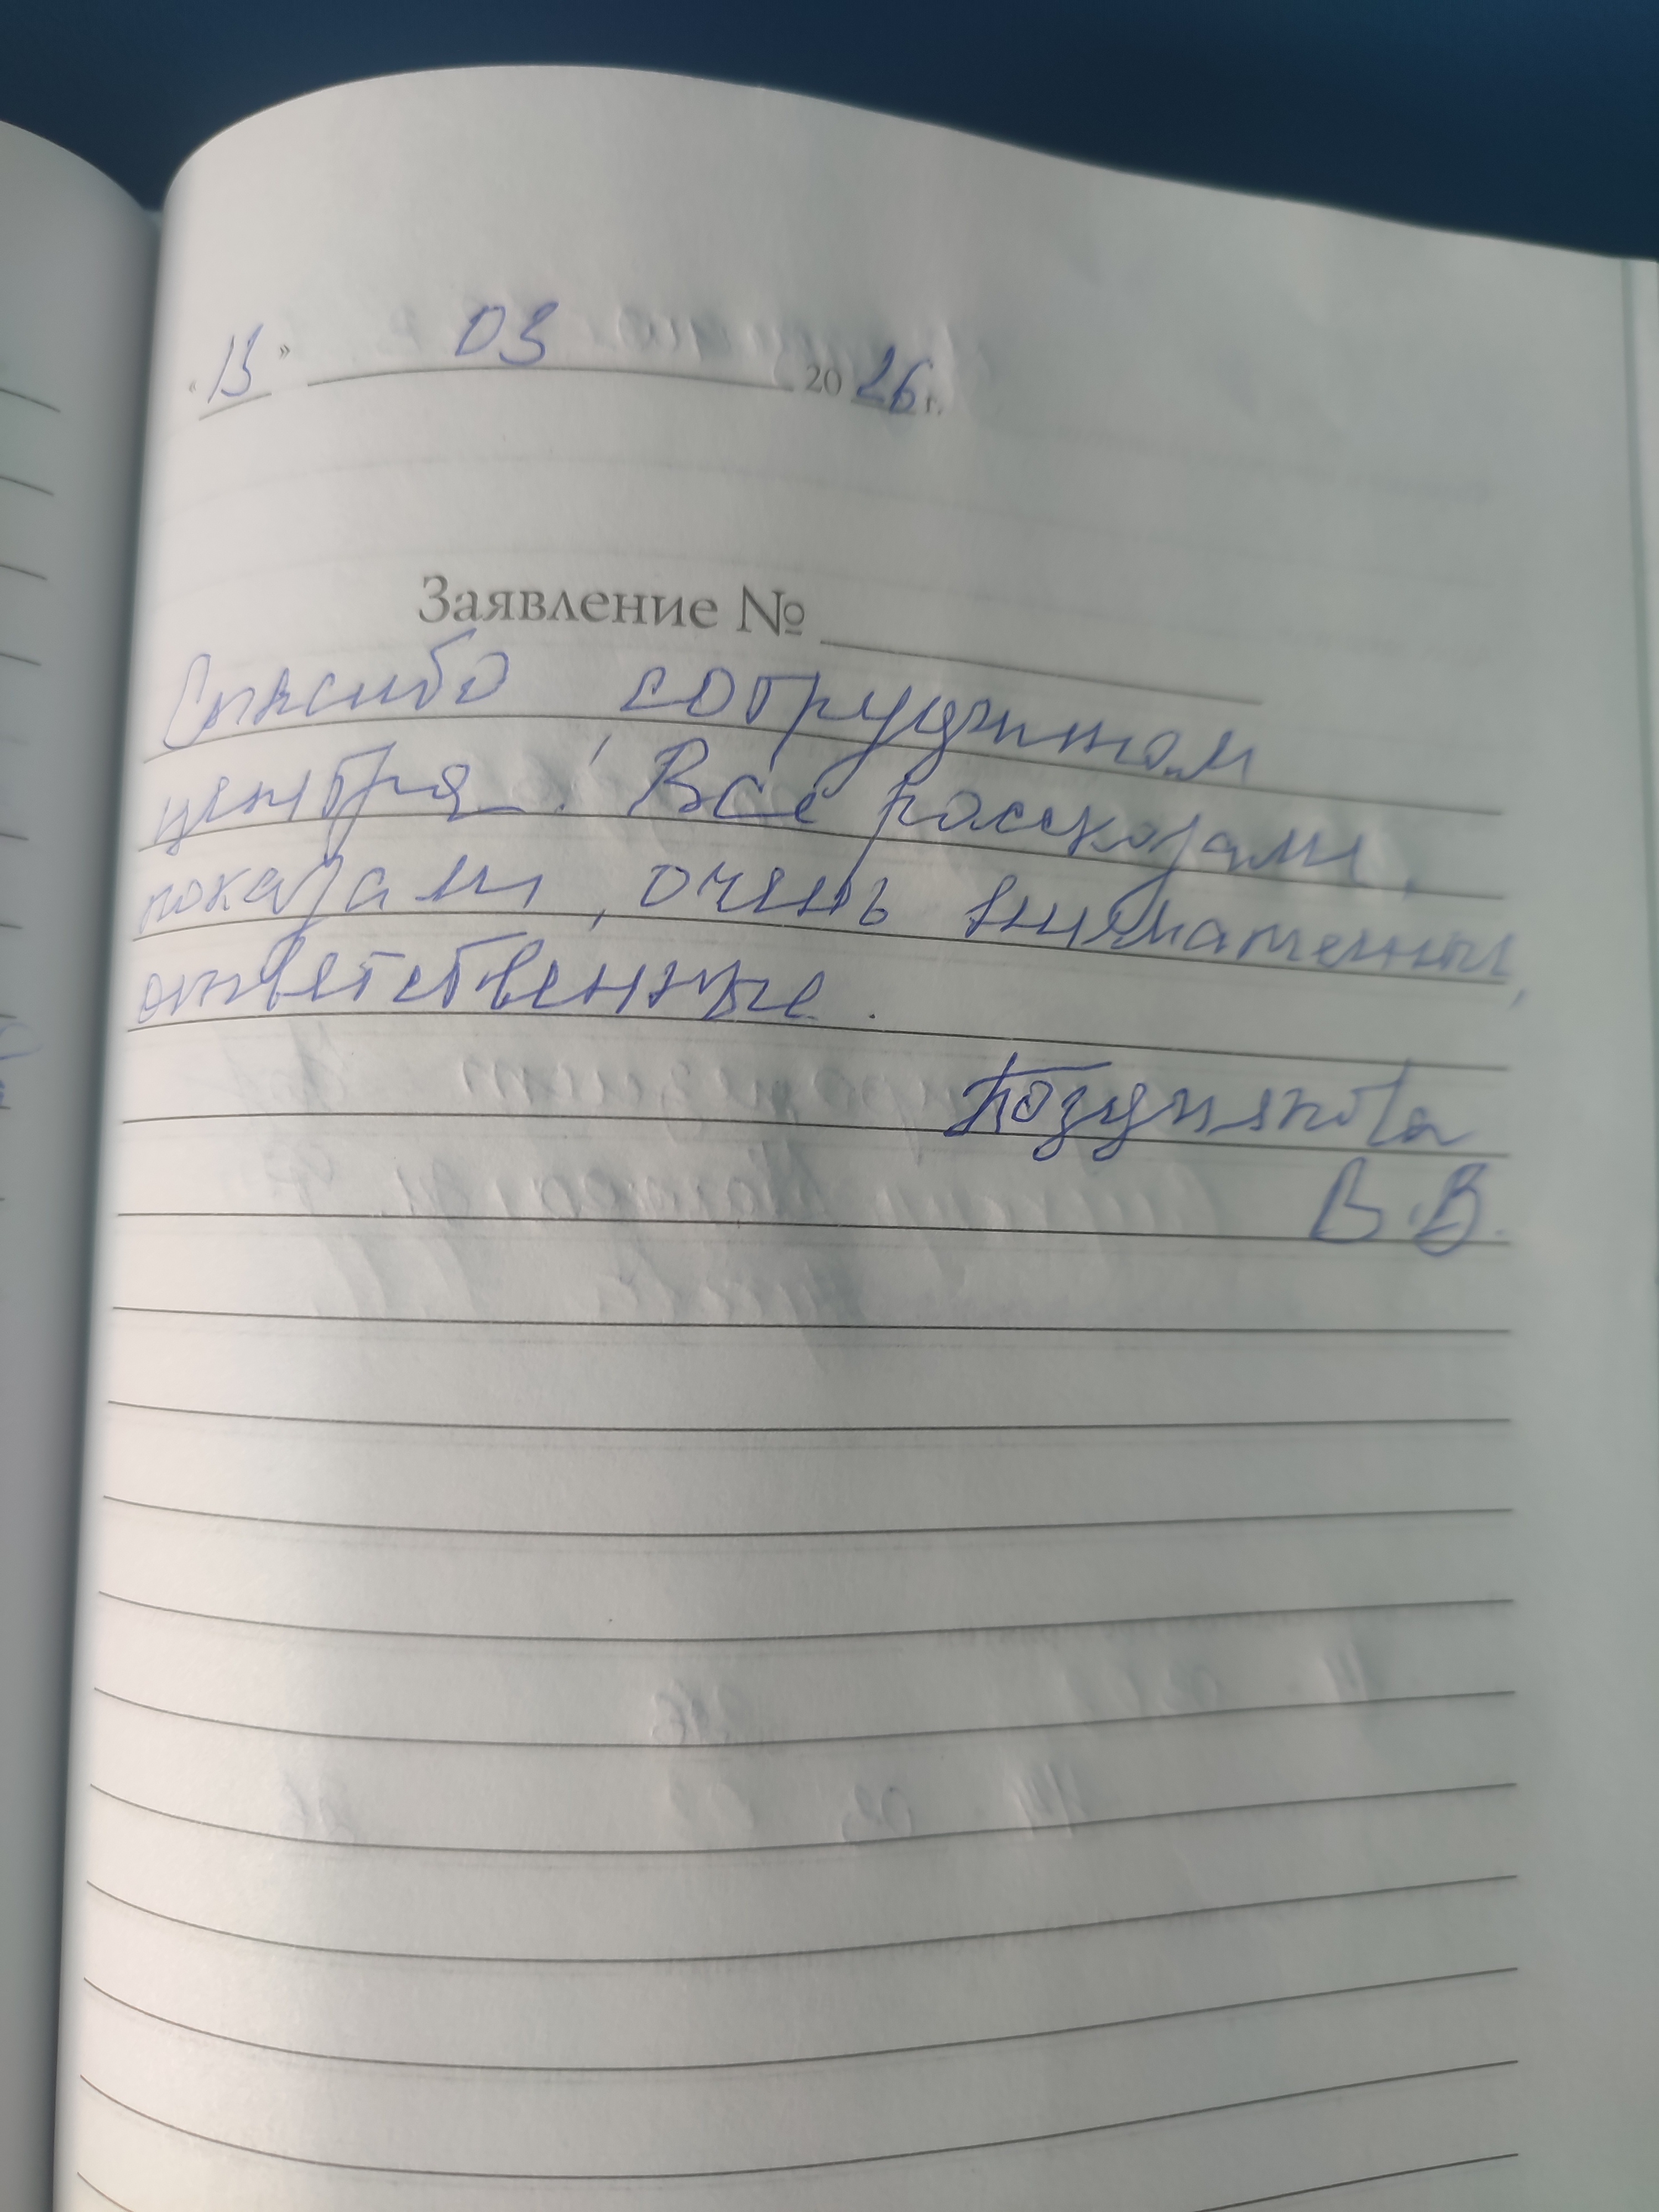 « 13 » 03 20 26 г.
Заявление №
Спасибо сотрудникам
центра! Всё рассказали,
показали, очень внимательны,
ответственные.
В.В.